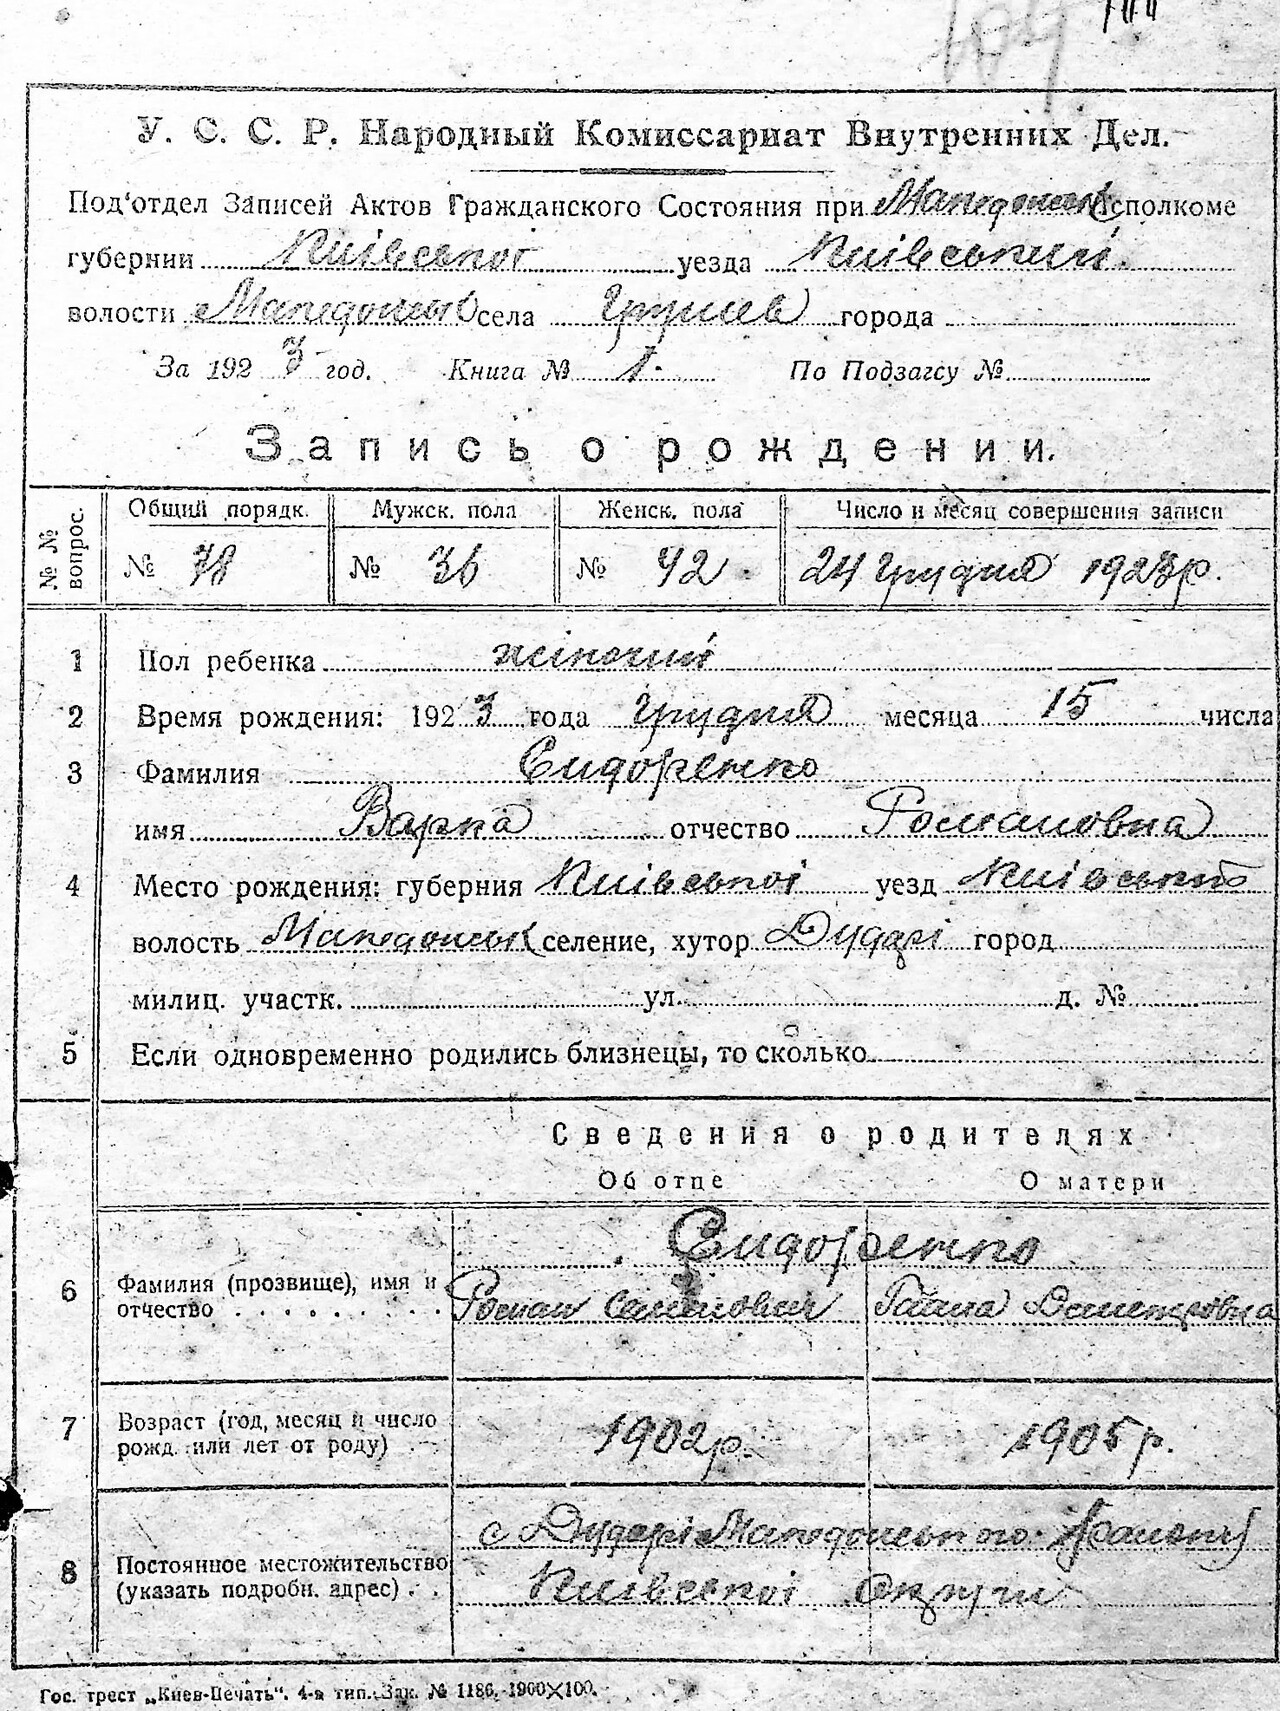 У. С. С. Р. Народный Комиссариат Внутренних Дел.
Под'отдел Записей Актов Гражданского Состояния при Македонськ Исполкоме
губернии Київської уезда Київський
волости Македонськ села Грушев города
За 1923 год. Книга № 1. По Подзагсу №
Запись о рождении.
№ № вопрос. Общий порядк. Мужск. пола Женск. пола Число и месяц совершения записи
№ 78 № 36 № 42 24 Грудня 1923 р.
1 Пол ребенка жіночий
2 Время рождения: 1923 года Грудня месяца 15 числа
3 Фамилия Сидоренко
имя Варка отчество Романовна
4 Место рождения: губерния Київської уезд Київський
волость Македонськ селение, хутор Дударі город
милиц. участк. ул. д. №
5 Если одновременно родились близнецы, то сколько
Сведения о родителях
Об отце О матери
Сидоренко
6 Фамилия (прозвище), имя и
отчество . . . . . . . . . Роман Семенович Гапа Дметровна
7 Возраст (год, месяц и число
рожд. или лет от роду) 1902 р. 1905 р.
с Дударі Македонського Району
8 Постоянное местожительство
(указать подробн. адрес) . . Київської округи
Гос. трест „Киев-Печать“. 4-я тип. Зак. № 1186, 1900×100.